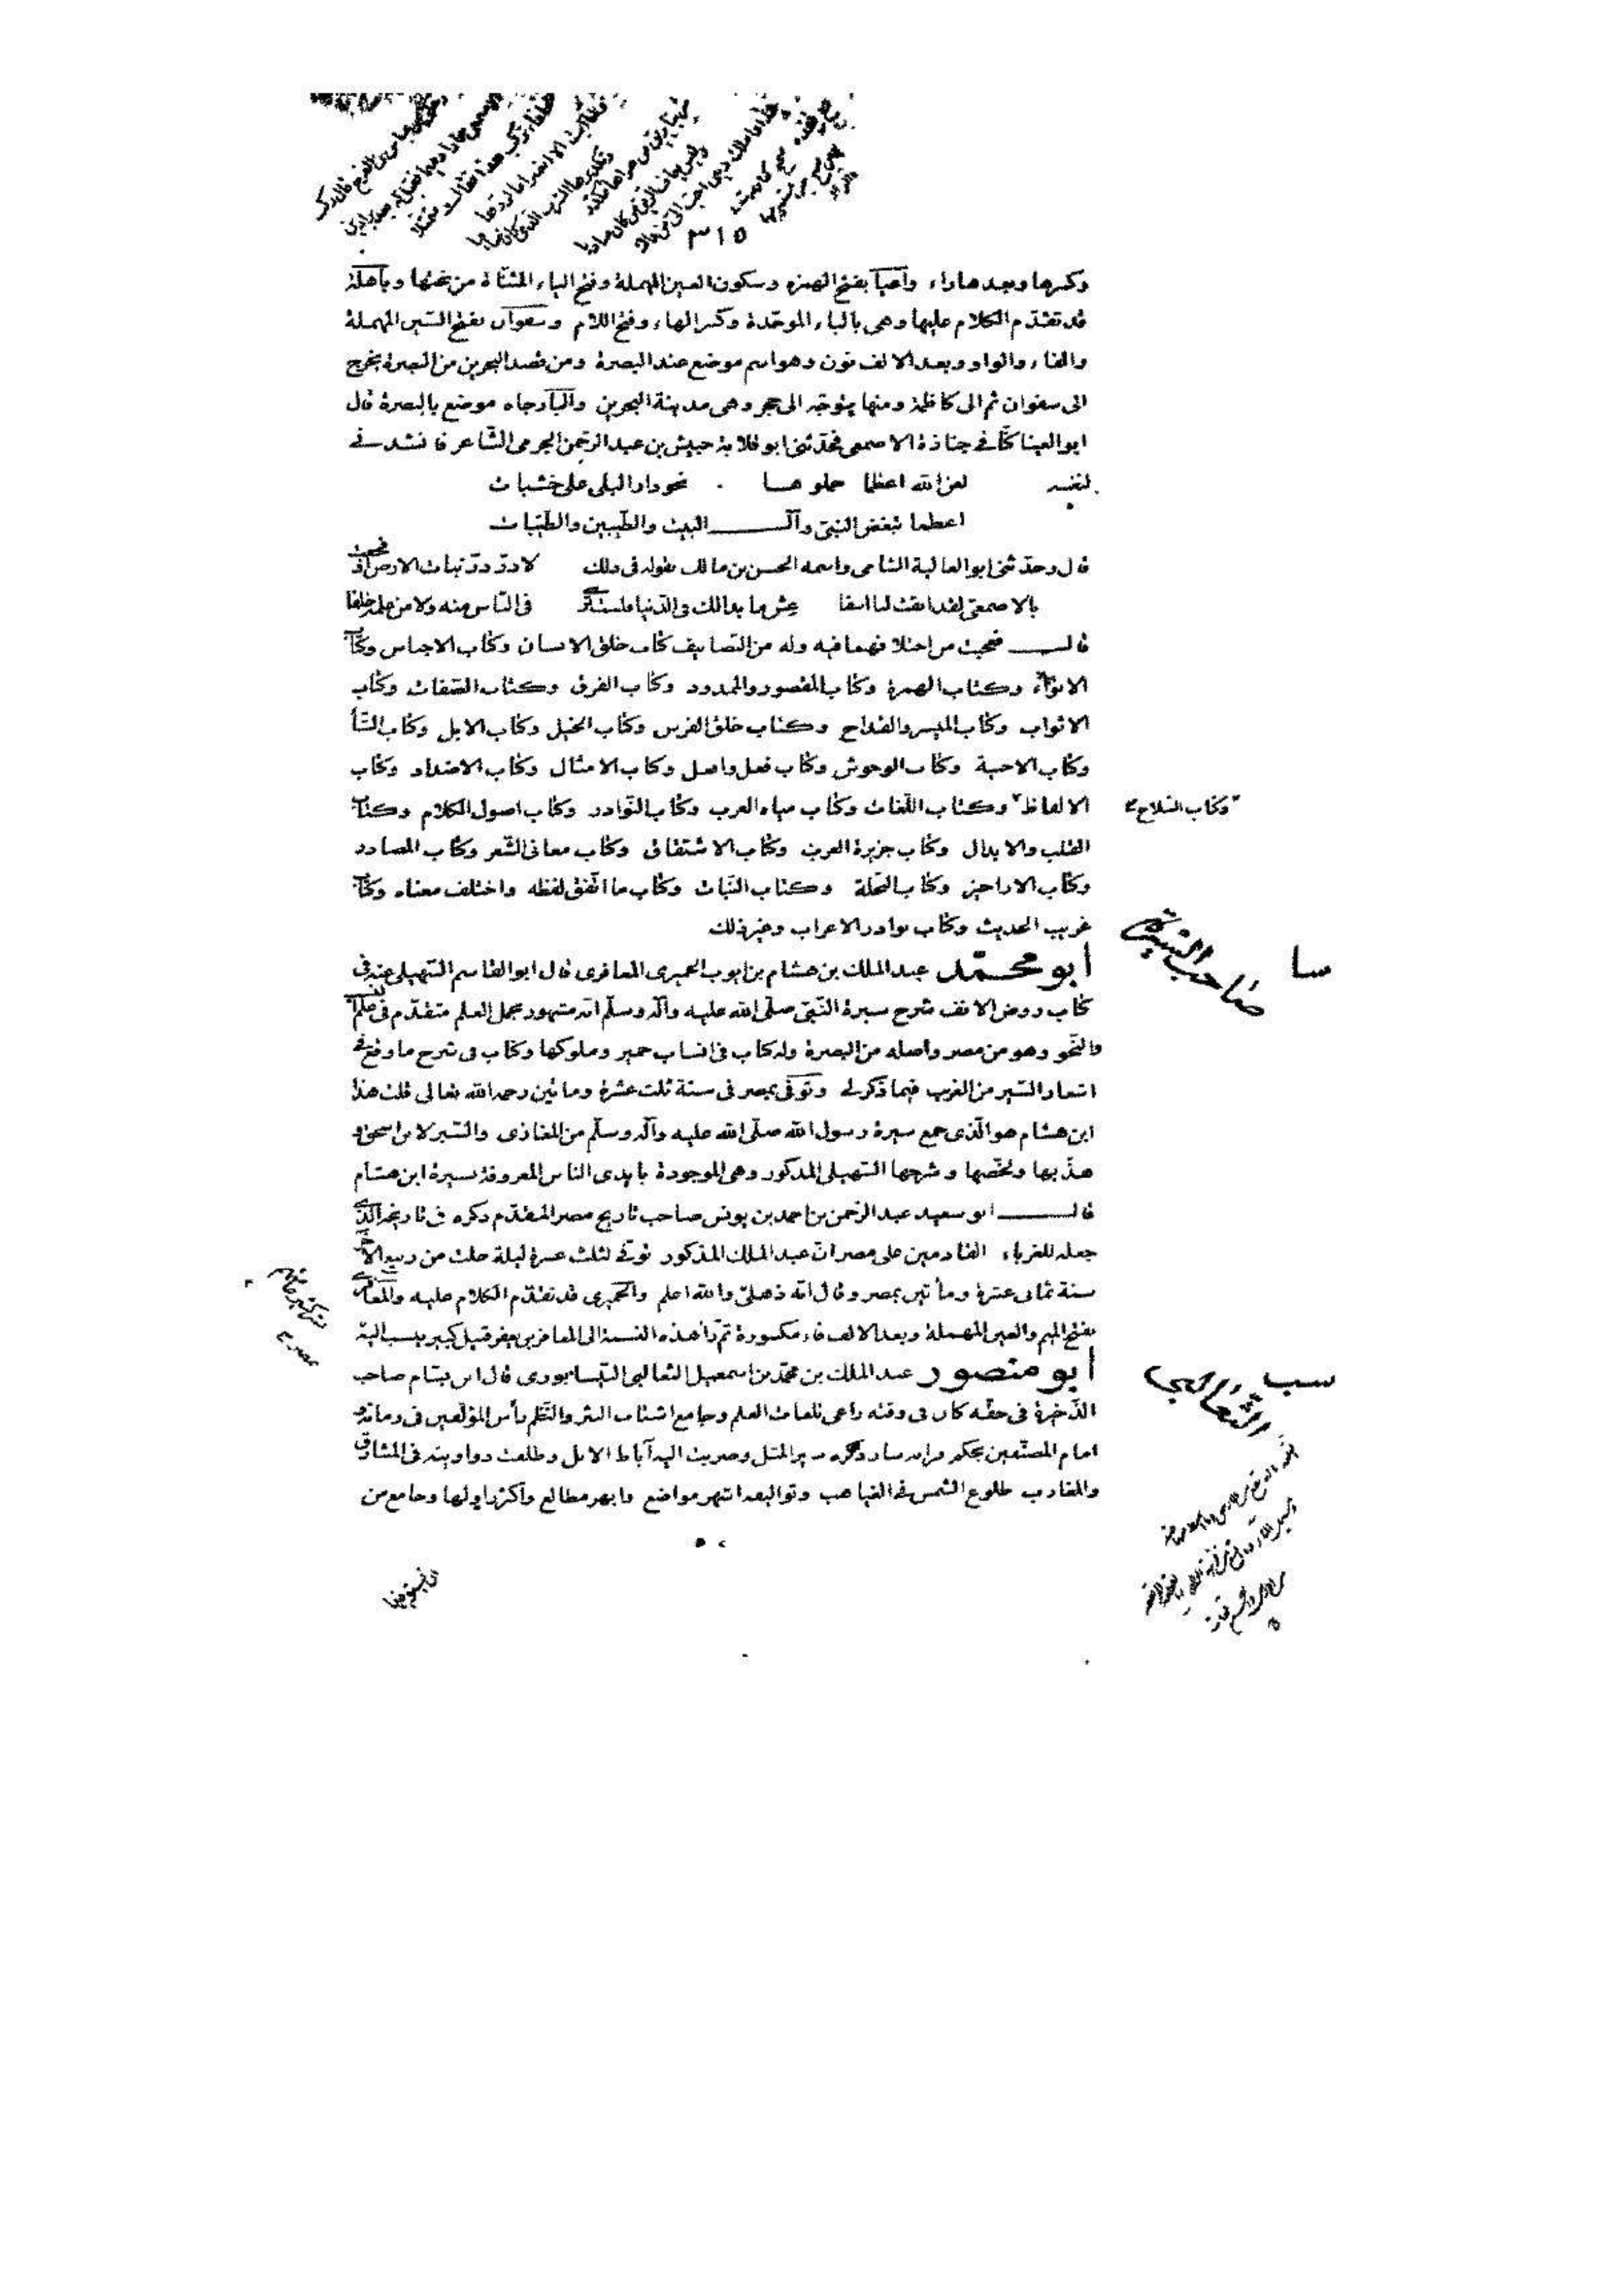 ٣١٥
وكسرها وبعدها راء وأعيا بفتح الهمزه وسكون العين المهملة وفتح الياء المثناة من تحتها وباهلة
قد تقدم الكلام عليها وهى بالباء الموحّدة وكسر الهاء وفتح اللام وسفوان بفتح السين المهملة
والفاء والواو وبعد الالف نون وهو اسم موضع عند البصرة ومن قصد البحرين من البصرة يخرج
الى سفوان ثم الى كاظمة ومنها يتوجّه الى هجر وهى مدينة البحرين والبارجاه موضع بالبصرة قال
ابو العينا كنّا فى جنازة الاصمعى فحدّثنى ابو قلابة حبيش بن عبد الرحمن الجرمى الشاعر فانشدنى
لنفسه لعن الله اعظما حملوها نحو دار البلى على خشبات
اعظما تبغض النبىّ وآل البيت والطيّبين والطيّبات
قال وحدّثنى ابو العالية الشامى واسمه الحسن بن مالك بقوله فى ذلك لا درّ درّ نبات الارض اذ فجعت
بالاصمعىّ لقد ابقت لنا اسفا عش ما بدا لك فى الدّنيا فلست ترى فى النّاس منه ولا من علمه خلفا
قال فعجبت من اختلافهما فيه وله من التصانيف كتاب خلق الانسان وكتاب الاجناس وكتاب
الانواء وكتاب الهمزة وكتاب المقصور والممدود وكتاب الفرق وكتاب الصّفات وكتاب
الاثواب وكتاب الميسر والقداح وكتاب خلق الفرس وكتاب الخيل وكتاب الابل وكتاب الشّا
وكتاب الاخبية وكتاب الوحوش وكتاب فعل وافعل وكتاب الامثال وكتاب الاضداد وكتاب
الالفاظ وكتاب اللّغات وكتاب مياه العرب وكتاب النّوادر وكتاب اصول الكلام وكتاب
وكتاب السّلاح
القلب والابدال وكتاب جزيرة العرب وكتاب الاشتقاق وكتاب معانى الشّعر وكتاب المصادر
وكتاب الاراجيز وكتاب النّخلة وكتاب النّبات وكتاب ما اتّفق لفظه واختلف معناه وكتاب
غريب الحديث وكتاب نوادر الاعراب وغير ذلك
سا
صاحب السّيرة
أبو محمّد عبد الملك بن هشام بن ايوب الحميرى المعافرى قال ابو القاسم السّهيلى عنه فى
كتاب روض الانف شرح سيرة النّبىّ صلّى الله عليه وآله وسلّم انّه مشهور بحمل العلم متقدّم فى علم النسب
والنّحو وهو من مصر واصله من البصرة وله كتاب فى انساب حمير وملوكها وكتاب فى شرح ما وقع فى
اشعار السّير من الغريب فيما ذكر لى وتوفّى بمصر فى سنة ثلث عشرة ومائتين رحمه الله تعالى قلت هذا
ابن هشام هو الّذى جمع سيرة رسول الله صلّى الله عليه وآله وسلّم من المغازى والسّير لابن اسحق و
هذّبها ولخّصها وشرحها السّهيلى المذكور وهى الموجودة بايدى الناس المعروفة بسيرة ابن هشام
قال ابو سعيد عبد الرحمن بن احمد بن يونس صاحب تاريخ مصر المقدّم ذكره فى تاريخه الّذى
جعله للغرباء القادمين على مصر انّ عبد الملك المذكور توفّى لثلث عشرة ليلة خلت من ربيع الآخر
سنة ثمانى عشرة ومأتين بمصر وقال انّه ذهلىّ والله اعلم والحميرى قد تقدّم الكلام عليه والمعافرى
بفتح الميم والعين المهملة وبعد الالف فاء مكسورة ثم راء هذه النسبة الى المعافر بن يعفر قبيل كبير ينسب اليه
سب
الثعالبى
أبو منصور عبد الملك بن محمّد بن اسمعيل الثعالبى النّيسابورى قال ابن بسّام صاحب
الذّخيرة فى حقّه كان فى وقته راعى تلعات العلم وجامع اشتات النثر والنّظم رأس المؤلّفين فى زمانه و
امام المصنّفين بحكم قرانه سار ذكره سير المثل وضربت اليه آباط الابل وطلعت دواوينه فى المشارق
والمغارب طلوع الشمس فى الغياهب وتواليفه اشهر مواضع وابهر مطالع واكثر راو لها وجامع من